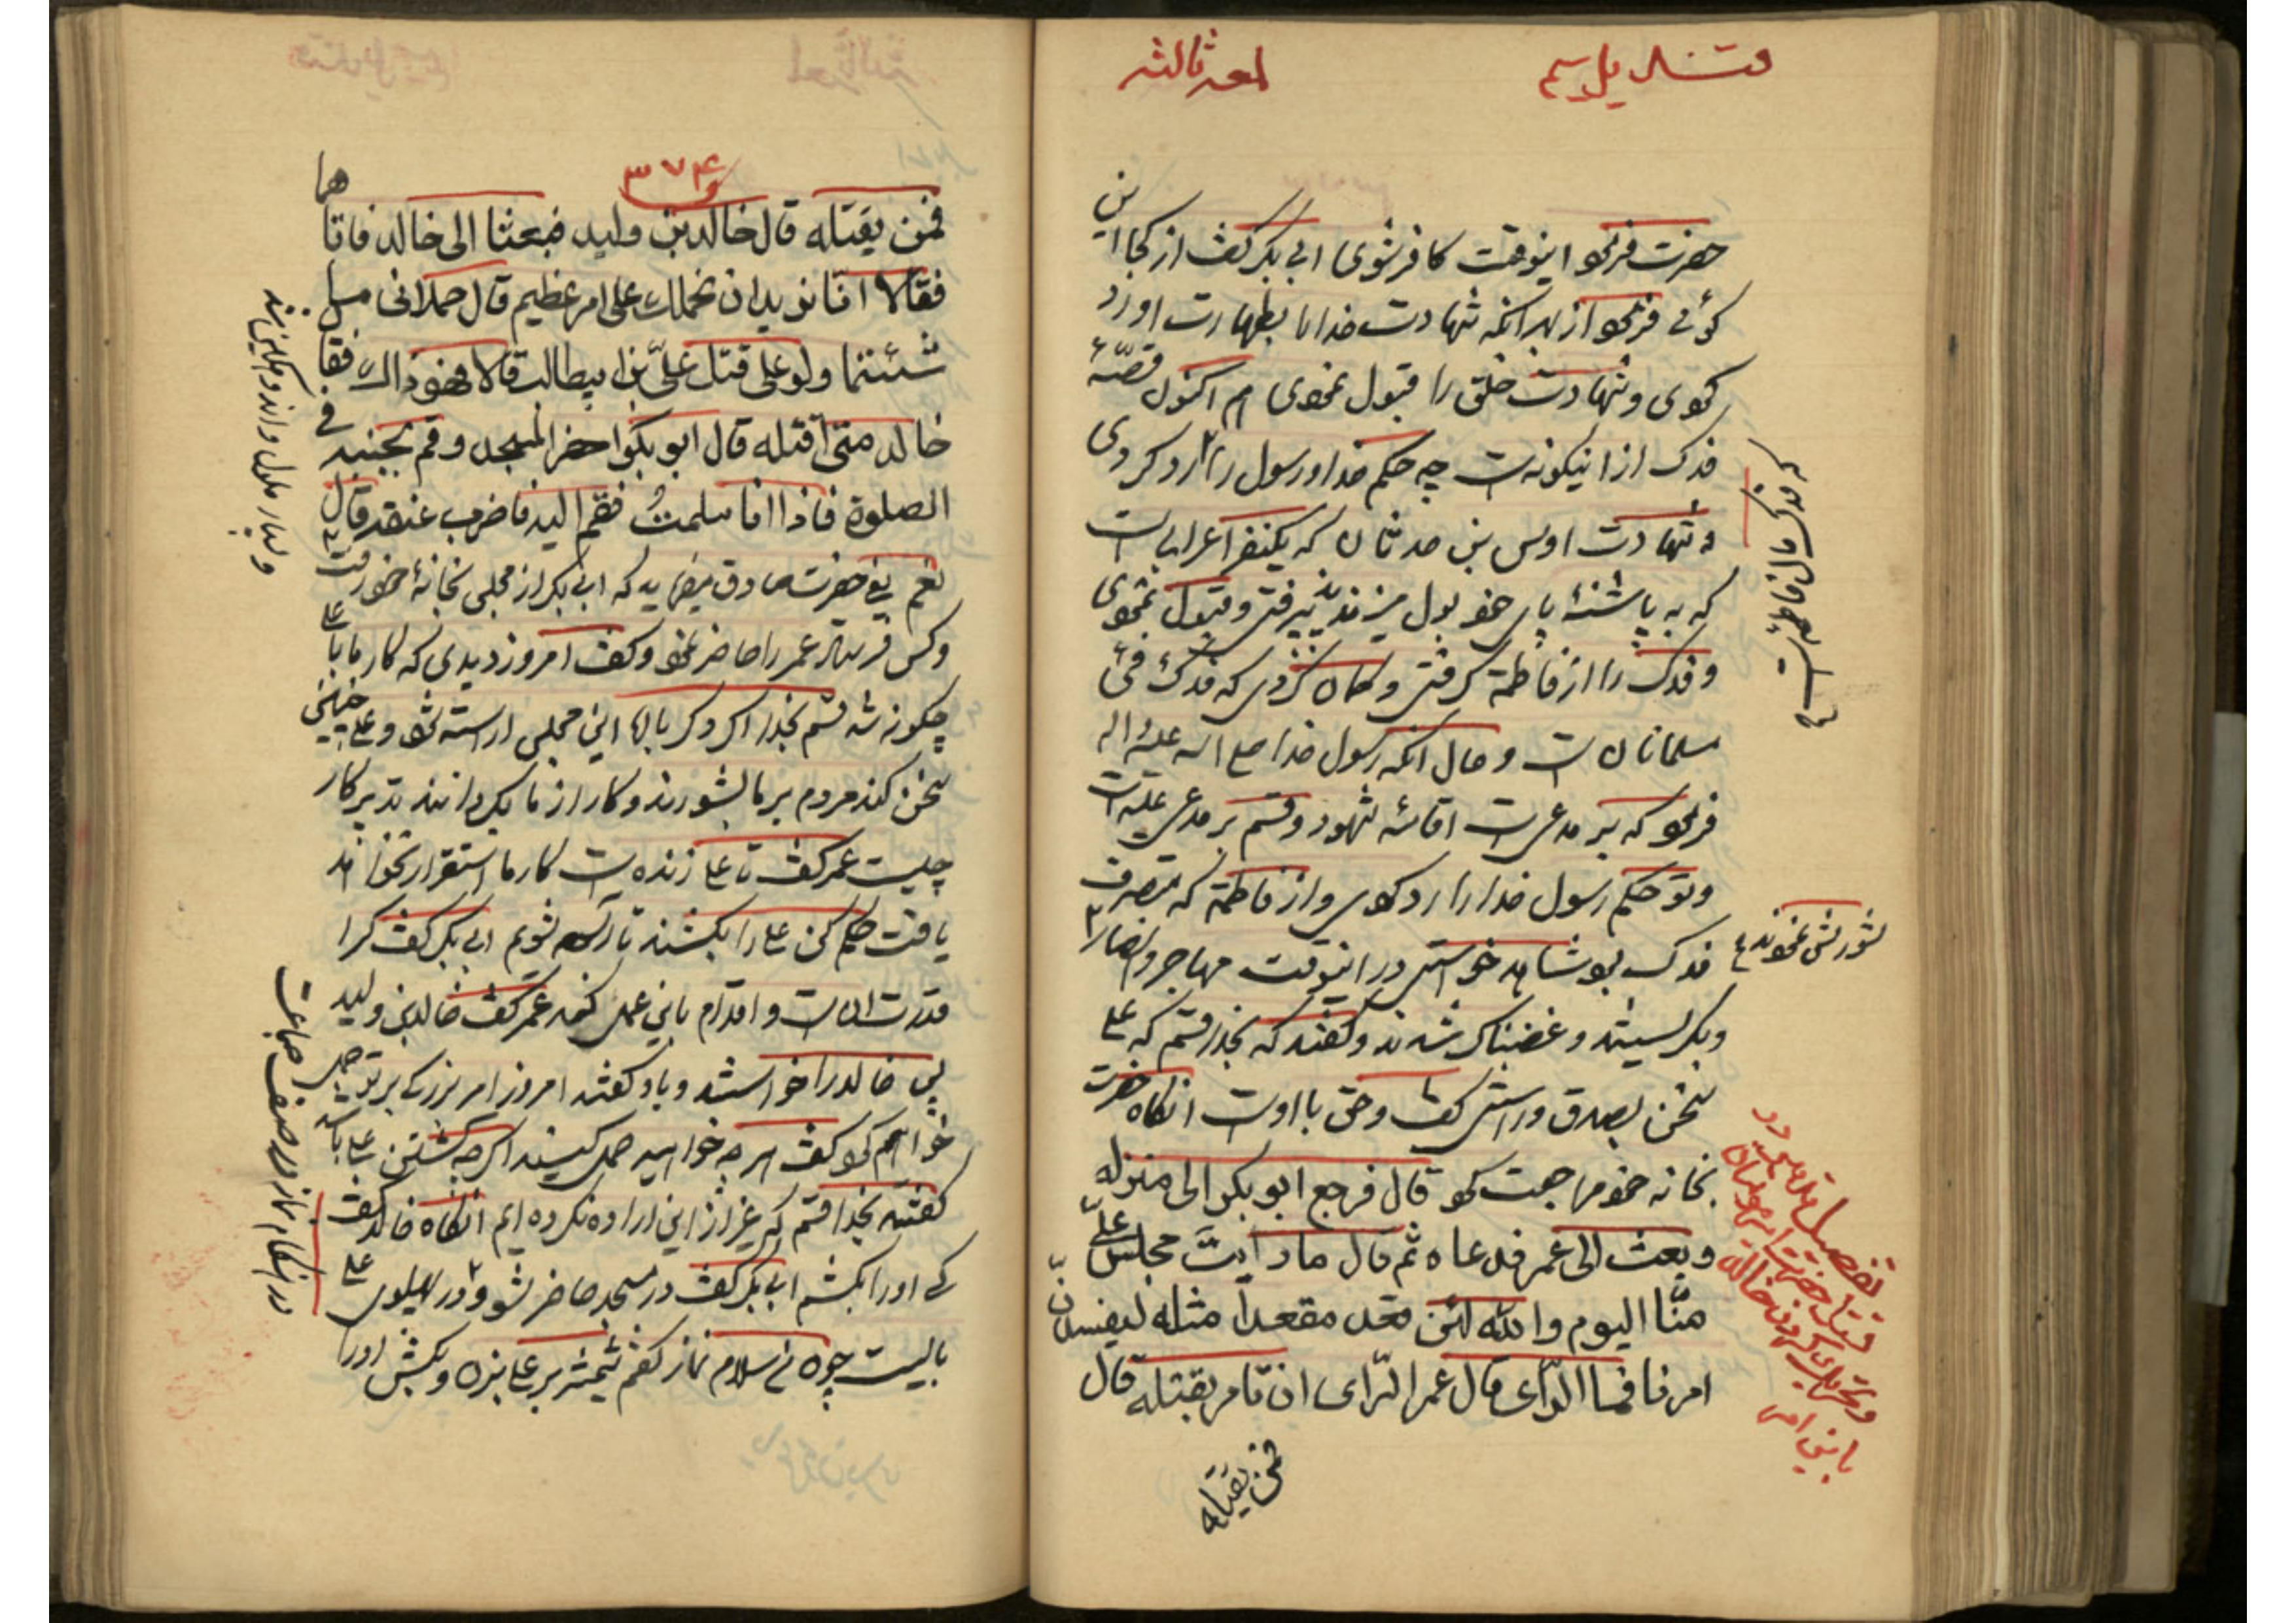 لمعه ثالثه
حضرت فرمود اینوقت کافر شوی ابی بکر گفت از کجا این
گوئی فرمود از بهر آنکه شهادت خدا را بطهارت او رد
کردی و شهادت خلق را قبول نمودی هم اکنون قصّهٔ
فدک ازاینگونه است چه حکم خدا و رسول را رد کردی
و شهادت اوس بن حدثان که یکنفر اعرابی است
که به پاشنهٔ پای خود بول میزند پذیرفتی و قبول نمودی
و فدک را از فاطمه گرفتی و گمان کردی که فدک فیئ
مسلمانان است و حال آنکه رسول خدا صلی الله علیه و اله
فرمود که بر مدعی است اقامهٔ شهود و قسم بر مدعی علیه است
و تو حکم رسول خدا را رد کردی و از فاطمه که متصرف
فدک بود شاهد خواستی در اینوقت مهاجر و انصار
و بگریستند و غضبناک شدند و گفتند که بخدا قسم که علی
سخن بصدق و راستی گفت و حق با اوست آنگاه حضرت
بخانه خود مراجعت کرد قال فرجع ابوبکر الی منزله
وبعث الی عمر فدعاه ثم قال ما رایت مجلس علیّ
منّا الیوم والله لئن قعد مقعداً مثله لیفسدنّ
امرنا فما الرّأی قال عمر الرّای ان تامر بقتله قال
فمن یقتله
که فدک مال فاطمه است
شورش نمودند
تفصیل
قتل حضرت امیر
باین امر
۳۷۴
فمن یقتله قال خالدبن ولید فبعثا الی خالد فاتاهما
فقالا انّا نرید ان نحملک علی امر عظیم قال حملانی ما
شئتما ولو علی قتل علیّ بن ابیطالب قالا فهو ذالک فقا
خالد متی اقتله قال ابوبکر احضر المسجد وقم بجنبه فی
الصلوة فاذا انا سلمتُ فقم الیه فاضرب عنقه قال
نعم یعنی حضرت صادق میفرماید که ابی بکر از مجلس بخانهٔ خود رفت
وکس فرستاد عمر را حاضر نمود و گفت امروز دیدی که کار ما با علی
چگونه شد قسم بخدا اگر دگر باره این مجلس آراسته شود و علی چنین
سخن کند مردم بر ما بشورند و کار از ما بگردانند تدبیر کار
چیست عمر گفت تا علی زنده است کار ما استقرار نخواهد
یافت حکم کن علی را بکشند تا آسوده شویم ابی بکر گفت کرا
قدرت آن است و اقدام باین عمل کند عمر گفت خالدبن ولید
پس خالد را خواستند و باو گفتند امروز امر بزرگی بر تو حمل
خواهیم کرد گفت هر چه خواهید حمل کنید اگر چه کشتن علی باشد
گفتند بخدا قسم که غیر از این اراده نکرده ایم آنگاه خالد گفت
کی او را بکشم ابی بکر گفت در مسجد حاضر شو و در پهلوی علی
بایست چون من سلام نماز گفتم شمشیر بر علی بزن و بکش او را
در هنگام نماز در صف جماعت